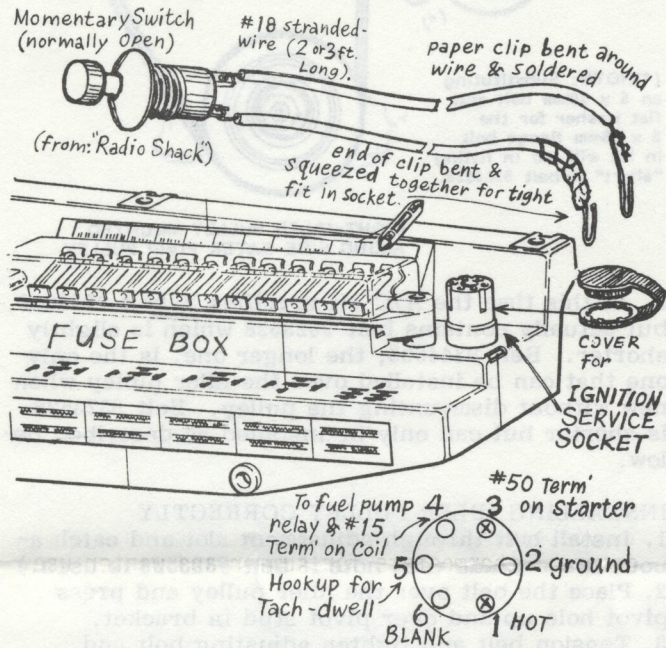 Momentary Switch
(normally Open)
#18 stranded-
wire (2 or 3 ft.
Long).
paper clip bent around
wire & soldered
(from: "Radio Shack")
end of clip bent &
squeezed together for tight
fit in socket.
FUSE BOX
COVER
for
IGNITION
SERVICE
SOCKET
#50 Term'
on starter
To fuel pump
relay & #15
Term' on Coil
4
3
5
2 ground
Hookup for
Tach-dwell
6
BLANK
1 HOT